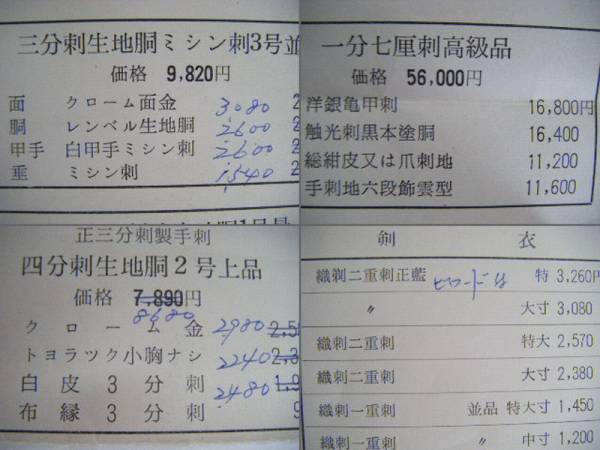 三分刺生地胴ミシン刺3号並
価格 9,820円
面 クローム面金 3080
胴 レンベル生地胴 2600
甲手 白甲手ミシン刺 2600
垂 ミシン刺 1540
一分七厘刺高級品
価格 56,000円
洋銀亀甲刺 16,800円
触光刺黒本塗胴 16,400
総紺皮又は爪刺地 11,200
手刺地六段飾雲型 11,600
正三分刺製手刺
四分刺生地胴2号上品
価格 7,890円
8680
クローム金 2980
トヨラック小胸ナシ 2240
白皮3分刺 2480
布縁3分刺
剣衣
織剃二重刺正藍 ビロードは 特 3,260円
〃 大寸 3,080
織刺二重刺 特大 2,570
織刺二重刺 大寸 2,380
織刺一重刺 並品 特大寸 1,450
織刺一重刺 〃 中寸 1,200